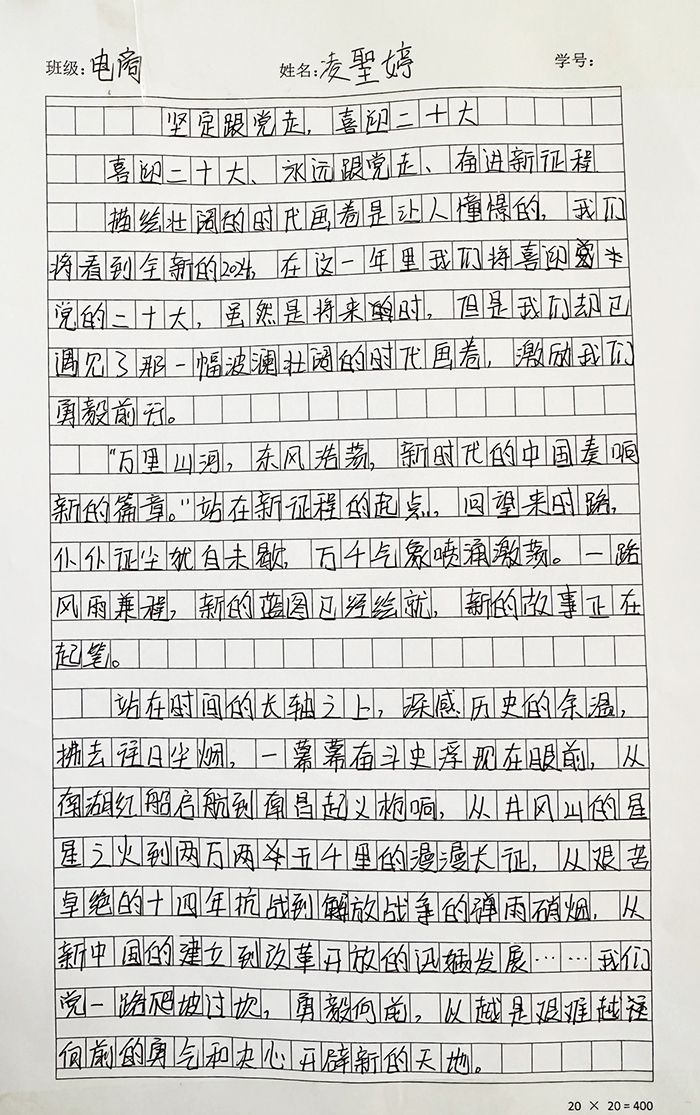 班级:电商 姓名:凌聖婷 学号:
坚定跟党走,喜迎二十大
喜迎二十大、永远跟党走、奋进新征程
描绘壮阔的时代画卷是让人憧憬的,我们
将看到全新的202 在这一年里我们将喜迎
党的二十大,虽然是将来的时,但是我们却已
遇见了那一幅波澜壮阔的时代画卷,激励我们
勇毅前行。
"万里山河,东风浩荡,新时代的中国奏响
新的篇章。"站在新征程的起点,回望来时路,
仆仆征尘犹自未歇,万千气象喷涌激荡。一路
风雨兼程,新的蓝图已经绘就,新的故事正在
起笔。
站在时间的长轴之上,深感历史的余温,
拂去往日尘烟,一幕幕奋斗史浮现在眼前,从
南湖红船启航到南昌起义枪响,从井冈山的星
星之火到两万两千五千里的漫漫长征,从艰苦
卓绝的十四年抗战到解放战争的弹雨硝烟,从
新中国的建立到改革开放的迅猛发展……我们
党一路爬坡过坎,勇毅向前,以越是艰难越往
向前的勇气和决心开辟新的天地。
20 × 20 = 400